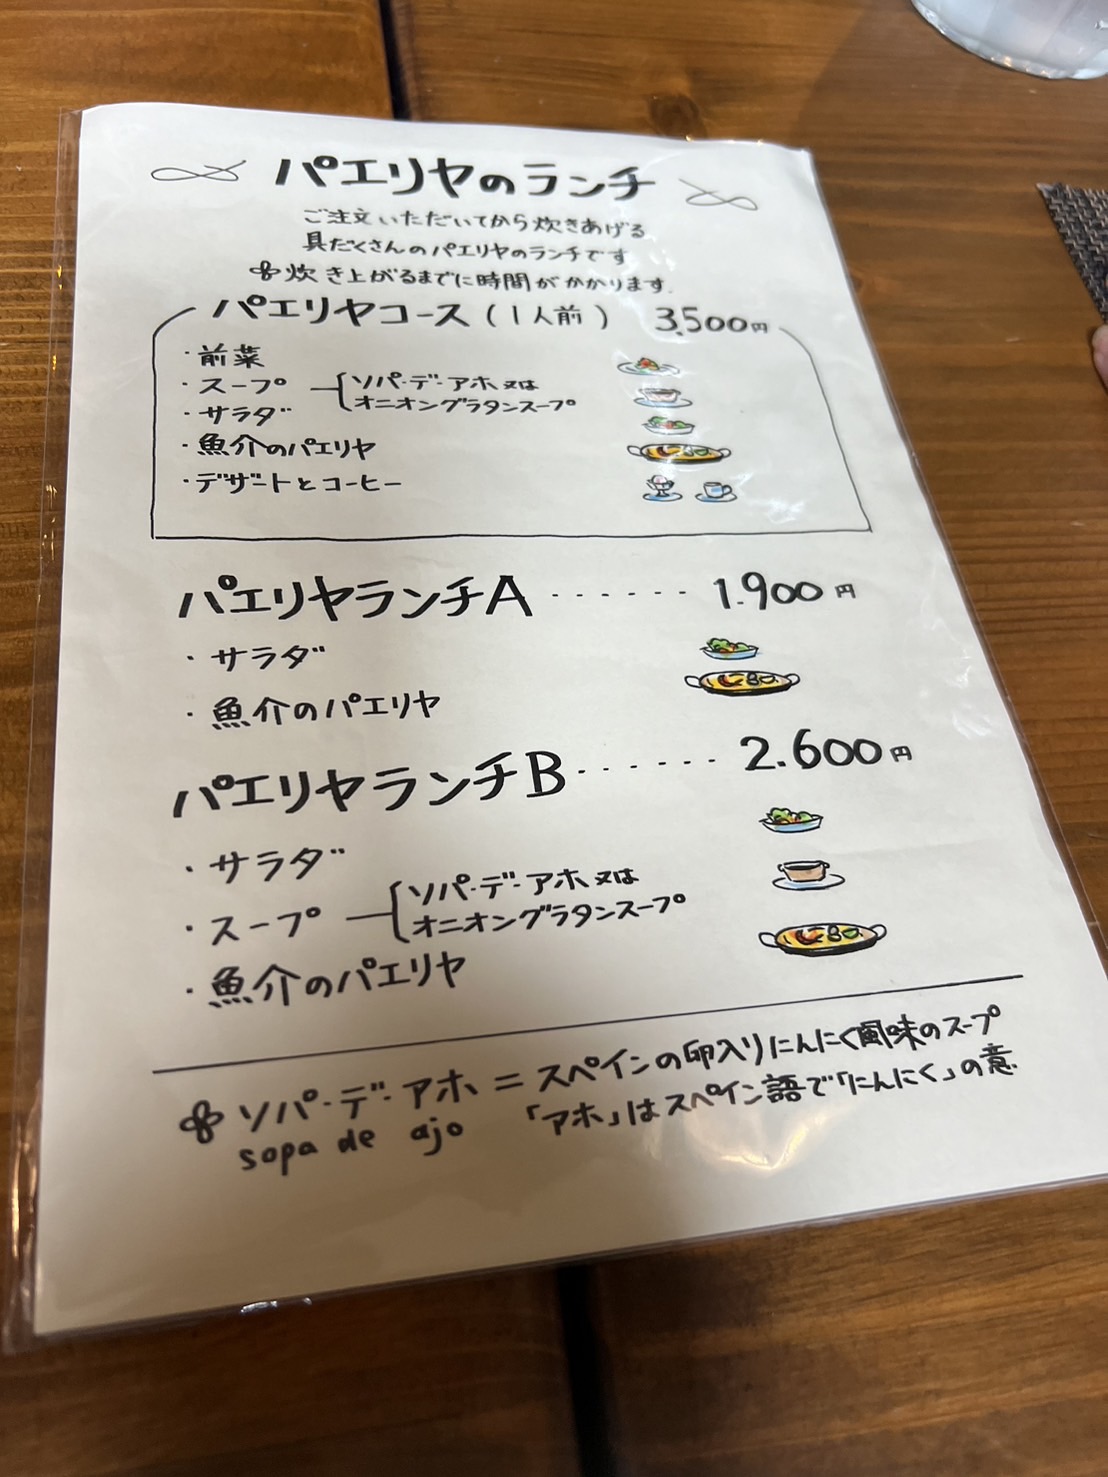 パエリヤのランチ
ご注文いただいてから炊きあげる
具だくさんのパエリヤのランチです
炊き上がるまでに時間がかかります.
パエリヤコース(1人前) 3,500円
・前菜
・スープ ソパ・デ・アホ 又は
オニオングラタンスープ
・サラダ
・魚介のパエリヤ
・デザートとコーヒー
パエリヤランチA ・・・・・・ 1.900円
・サラダ
・魚介のパエリヤ
パエリヤランチB ・・・・・・ 2.600円
・サラダ
・スープ ソパ・デ・アホ 又は
オニオングラタンスープ
・魚介のパエリヤ
ソパ・デ・アホ = スペインの卵入りにんにく風味のスープ
sopa de ajo 「アホ」はスペイン語で「にんにく」の意.